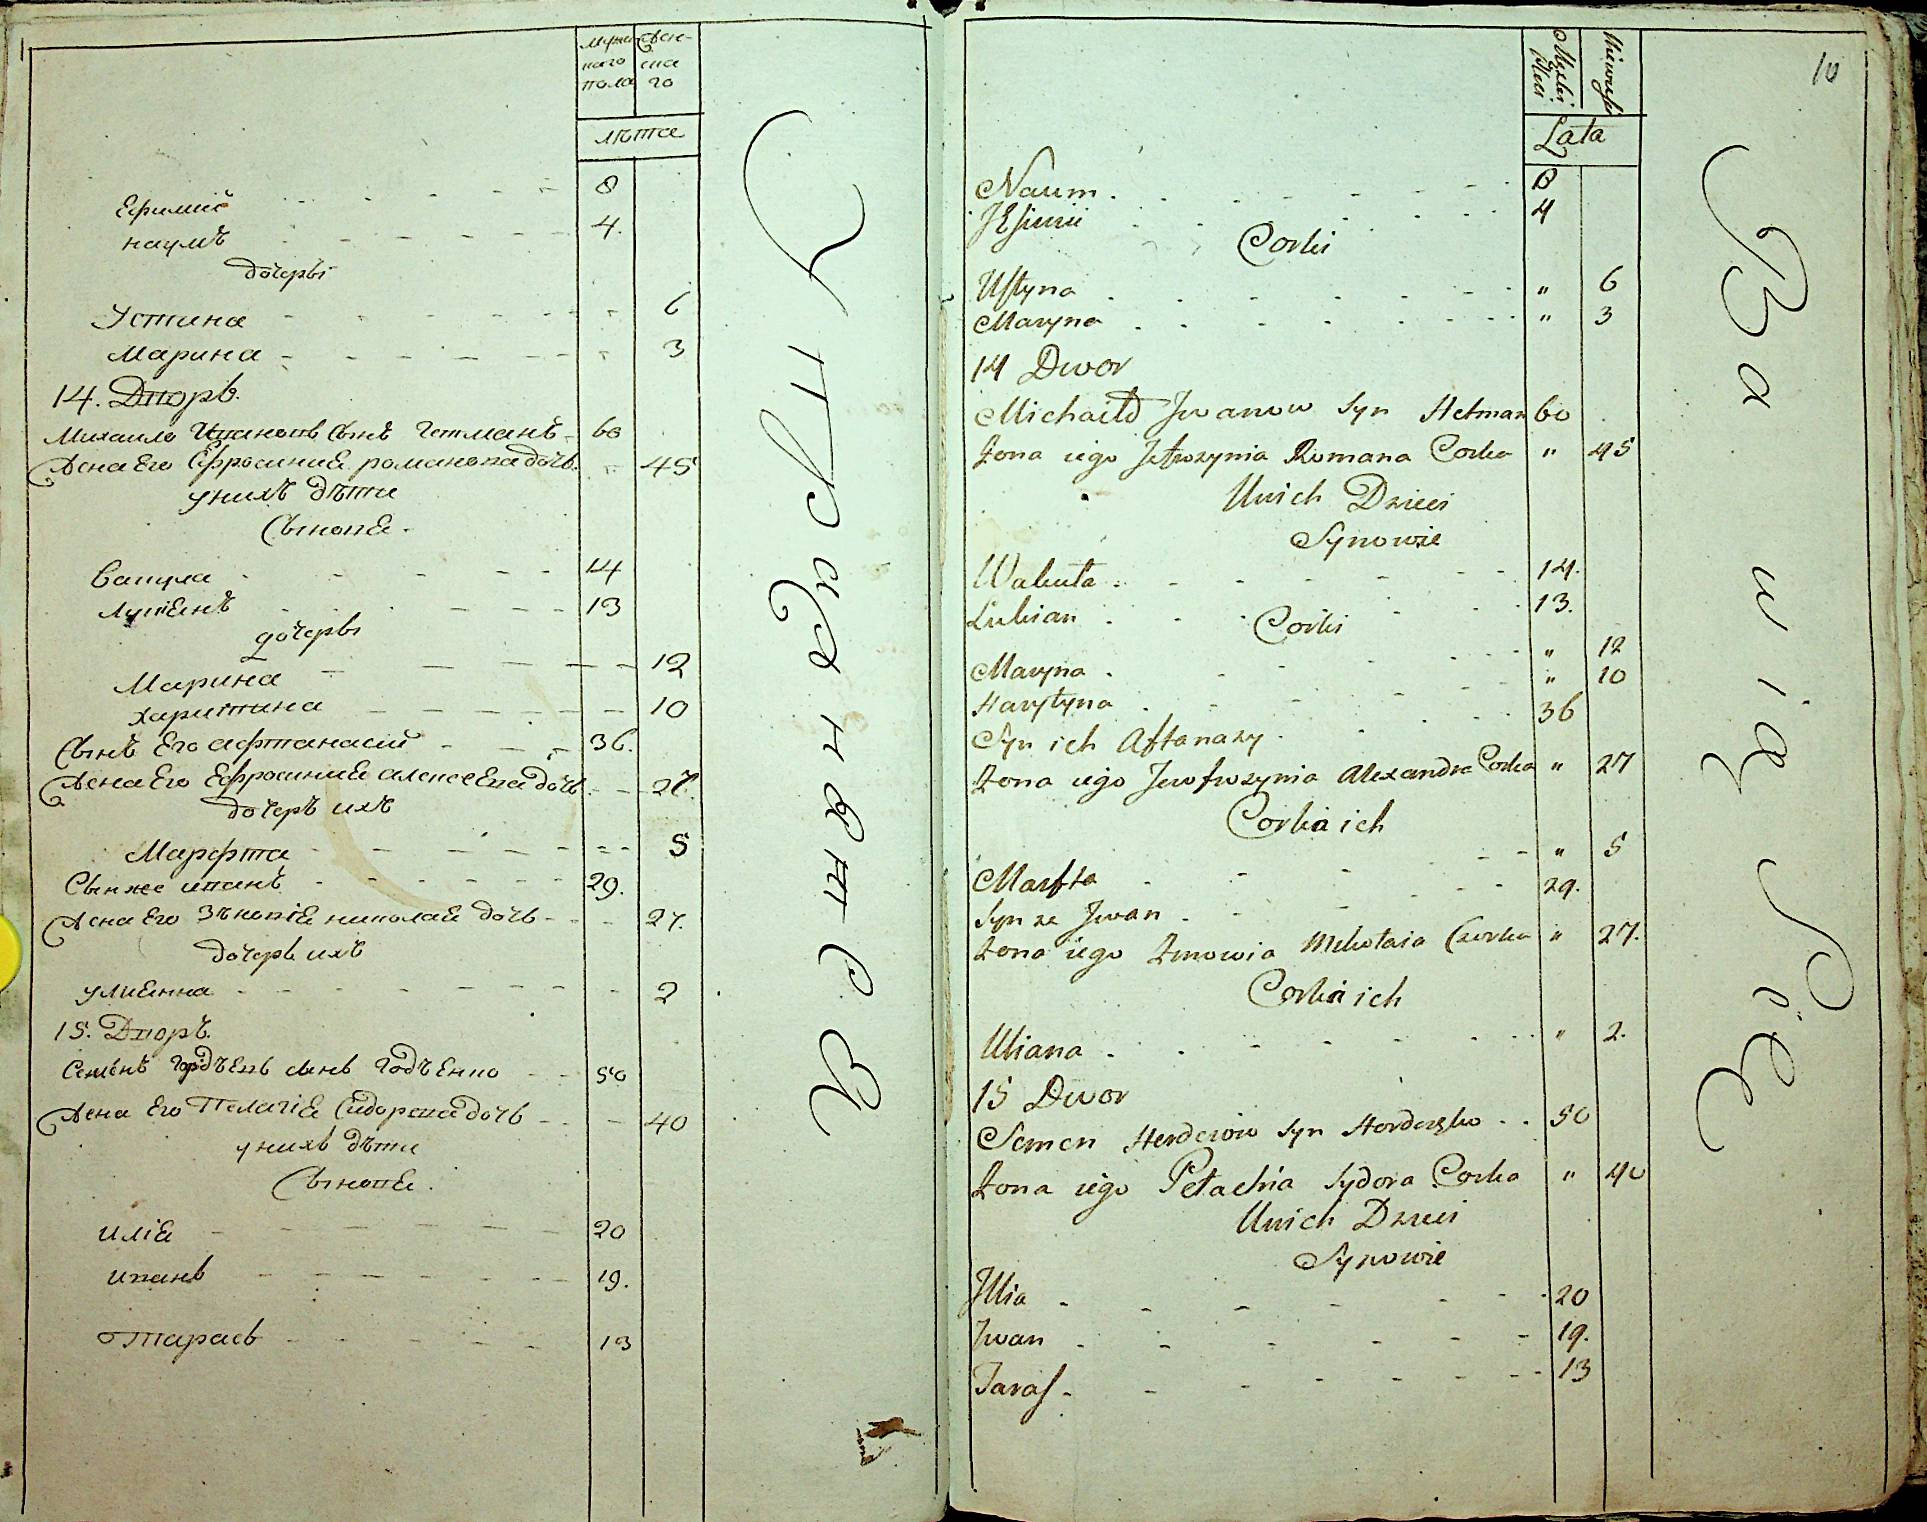 мужеского пола
женскаго
лѣта
Ефимий 8
наумъ 4.
дочеры
Устина 6
Марина 3
14. Дворъ.
Михаило Иванов Сынъ гетманъ 60
Жена Его Ефросиниѣ романова дочь 45
у нихъ дѣти
Сынове.
Вакула 14
Лукіенъ 13
дочеры
Марина 12
Харитина 10
Сынъ Его афтанасий 36.
Жена Его Ефросиние алексеева дочь 27.
дочеръ ихъ
Марфта 5
Сын же иванъ 29.
Жена Его Зѣновіе николае дочь 27.
дочерь ихъ
улиенна 2
15. Дворъ.
Семенъ сынъ 50
Жена Его Пелагіе Сидорова дочь 40
у нихъ дѣти
Сынове.
иліе 20
иванъ 19.
тарасъ 13
10
Męzkiey Płci
Lata
Naum 8
JEfimii 4
Corki
Ustyna " 6
Maryna " 3
14 Dwor
Michaiło Jwanow Syn Hetman 60
Zona iego Jefrozynia Romana Corka " 45
Unich Dzieci
Synowie
Wakuła 14.
Lukian 13.
Corki
Maryna " 12
Harytyna " 10
Syn ich Aftanazy 36
Zona iego Jewfrozynia Alexandra Corka " 27
Corka ich
Marfta " 5
Syn ze Jwan 29.
Zona iego Zinowia Mikołaia Czorka " 27.
Corka ich
Uliana " 2.
15 Dwor
Semen Syn 50
Zona iego Pełachia Sydora Corka " 40
Unich Dzieci
Synowie
Jllia 20
Jwan 19.
Taras 13